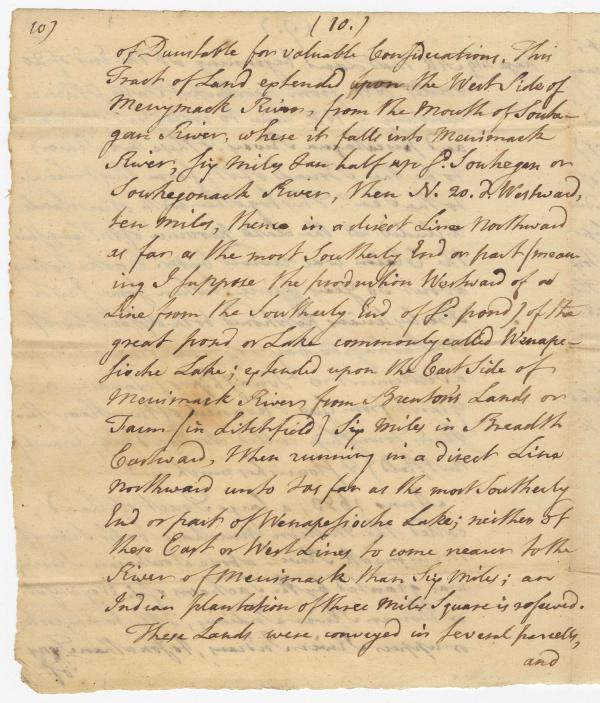 10)
(10.)
of Dunstable for valuable Considerations. This
Tract of Land extended upon the West Side of
Merrymack River, from the Mouth of Souhe-
gan River, where it falls into Merrimack
River, Six Miles & an half up sd. Souhegan or
Souhegonack River, then N. 20. D. Westward,
ten Miles, thence in a direct Line Northward
as far as the most Southerly End or part (mean-
ing I suppose the production Westward of a
Line from the Southerly End of sd. pond) of the
great pond or Lake commonly called Wenape-
sioche Lake; extended upon the East Side of
Merrimack River from Brenton's Lands or
Farm [in Litchfield] Six Miles in Breadth
Eastward, then running in a direct Line
Northward unto & as far as the most Southerly
End or part of Wenapesioche Lake; neither of
these East or West Lines to come nearer to the
River of Merrimack than Six Miles; an
Indian plantation of three Miles Square is reserved.
These Lands were conveyed in several parcels,
and